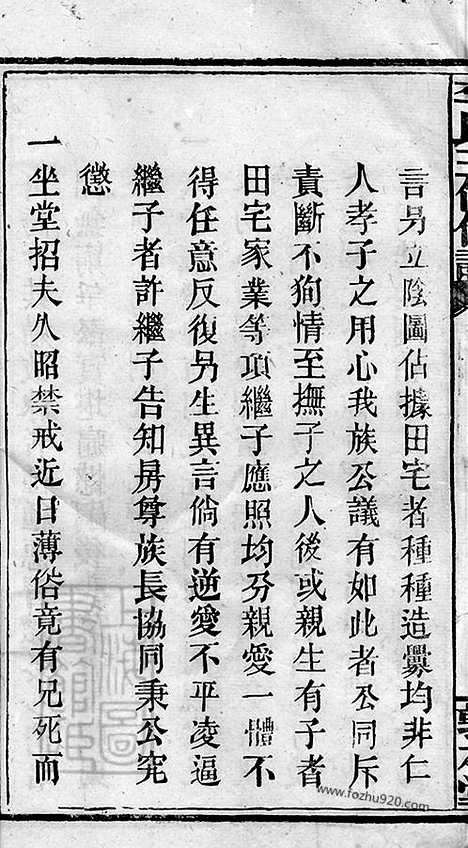 言另立陰圖佔據田宅者種種造釁均非仁
人孝子之用心我族公議有如此者公同斥
責斷不狥情至撫子之人後或親生有子者
田宅家業等項繼子應照均分親愛一體不
得任意反復另生異言倘有逆愛不平凌逼
繼子者許繼子告知房尊族長協同秉公究
懲
一坐堂招夫久昭禁戒近日薄俗竟有兄死而
www.fozhu920.com